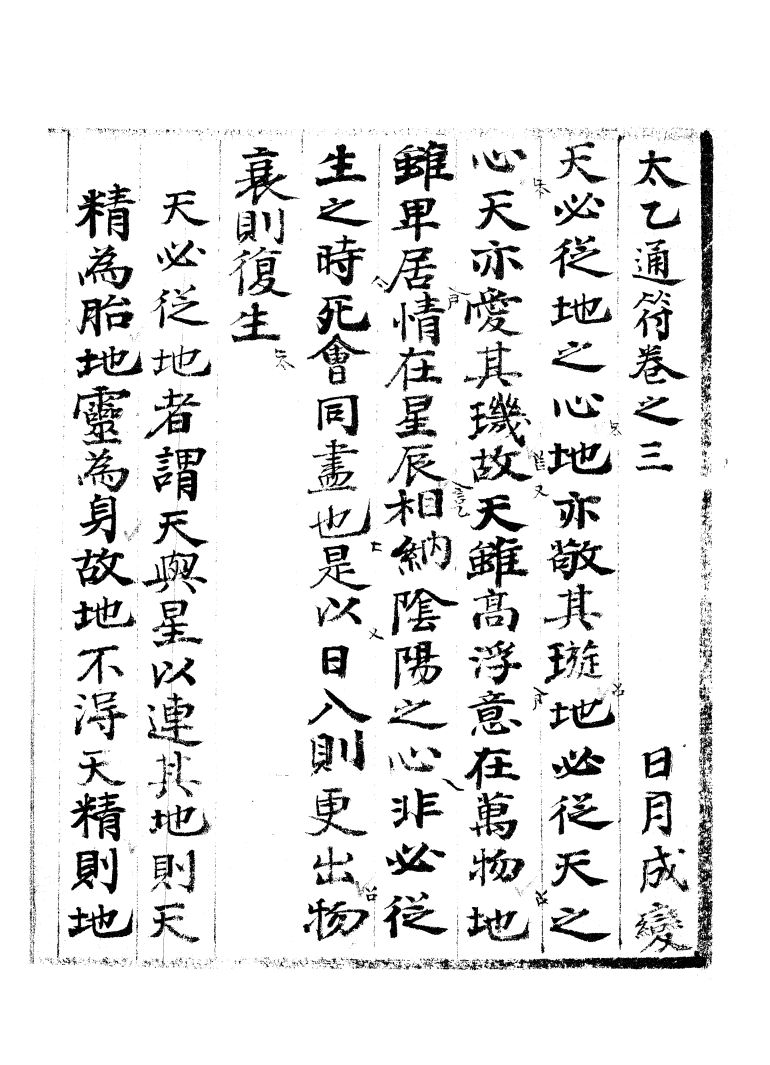 太乙通符卷之三 日月成變
天必從地之心地亦敬其璇地必從天之
心天亦愛其璣故天雖高浮意在萬物地
雖卑居情在星辰相納陰陽之心非必從
生之時死會同盡也是以日入則更出物
衰則復生
天必從地者謂天與星以連其地則天
精為胎地靈為身故地不淂天精則地